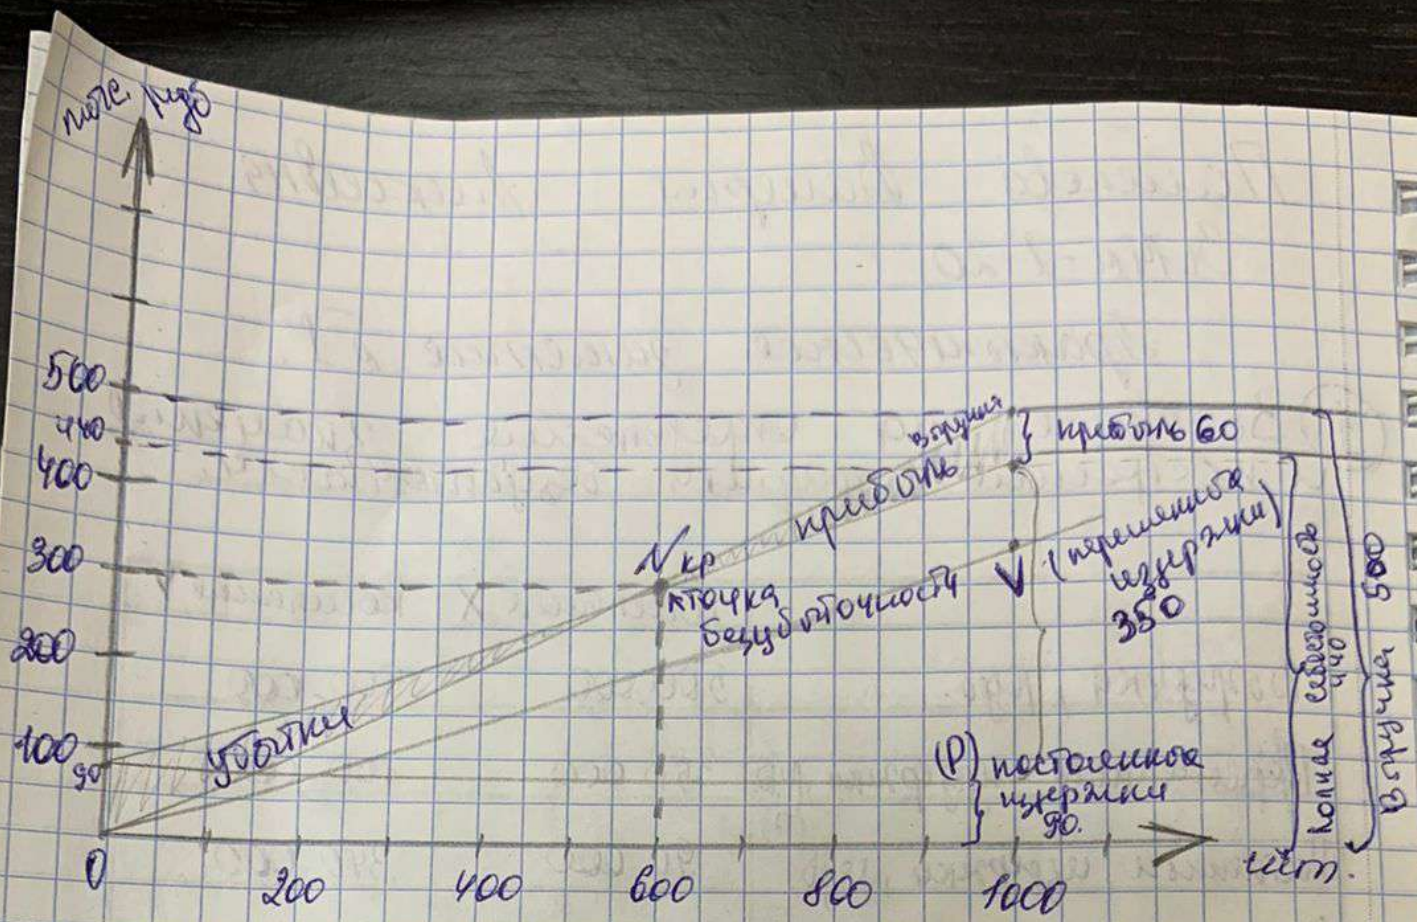 тыс. руб
500
440
400
300
200
100
90
0
200
400
600
800
1000
шт.
Nкр
точка
безубыточности
убытки
прибыль
Выручка
} прибыль 60
V (переменные
издержки)
350
(P) постоянные
издержки
90.
Полная себестоимость
440
Выручка 500